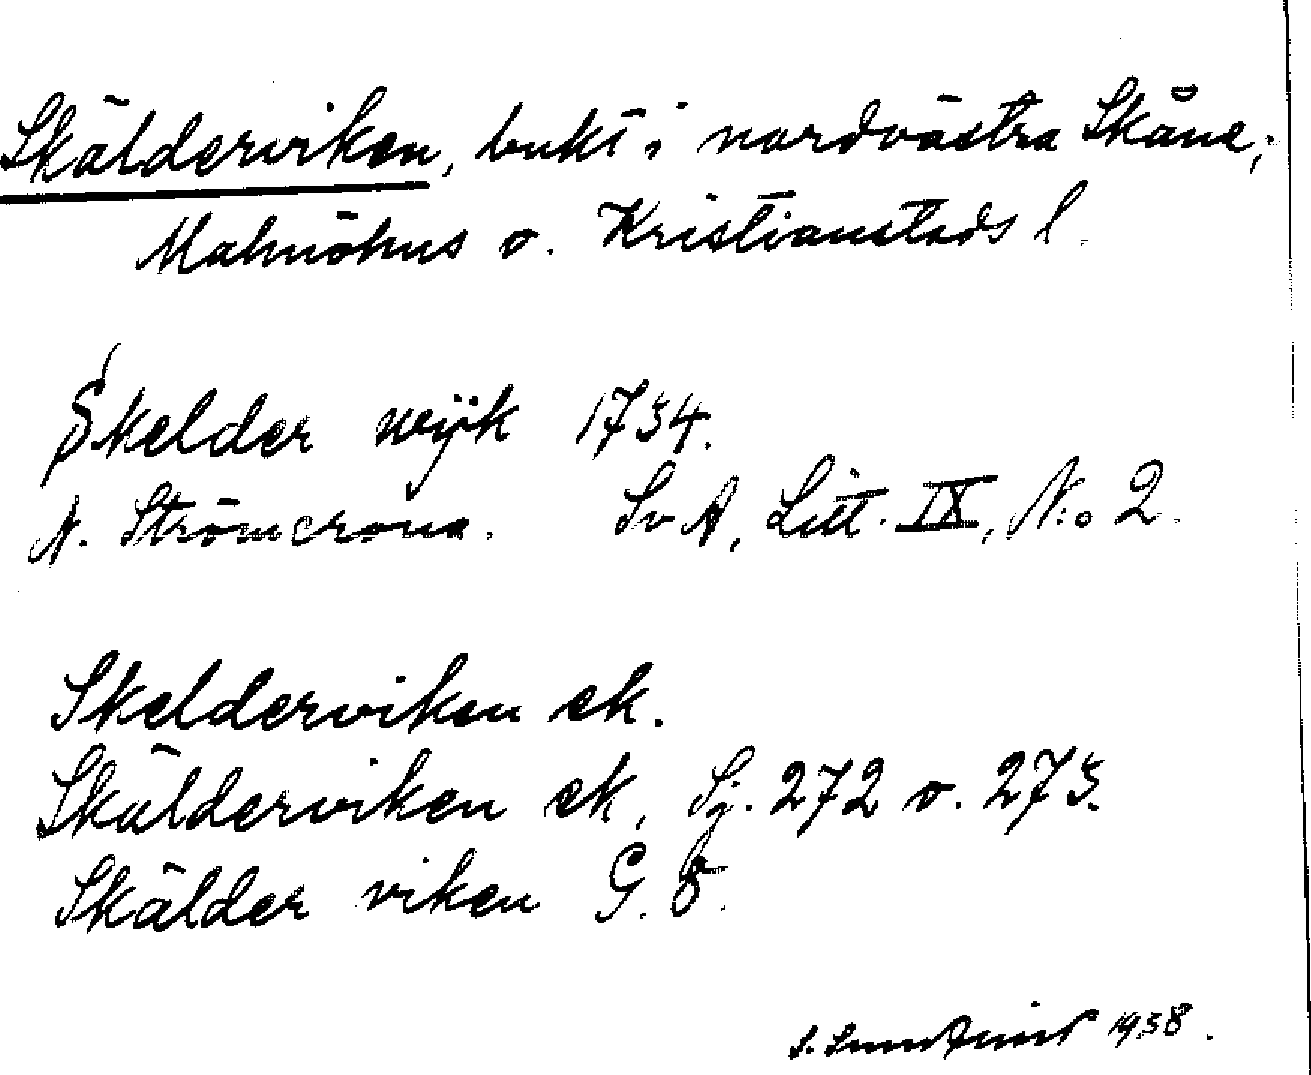 Skälderviken, bukt i nordvästra Skåne,
Malmöhus o. Kristianstads l.
Skelder wijk 1734.
N. Strömcrona. SvA, Litt. IX, N:o 2.
Skelderviken ek.
Skälderviken ek, Sj. 272 o. 273.
Skälder viken G. 8.
S. 1938.